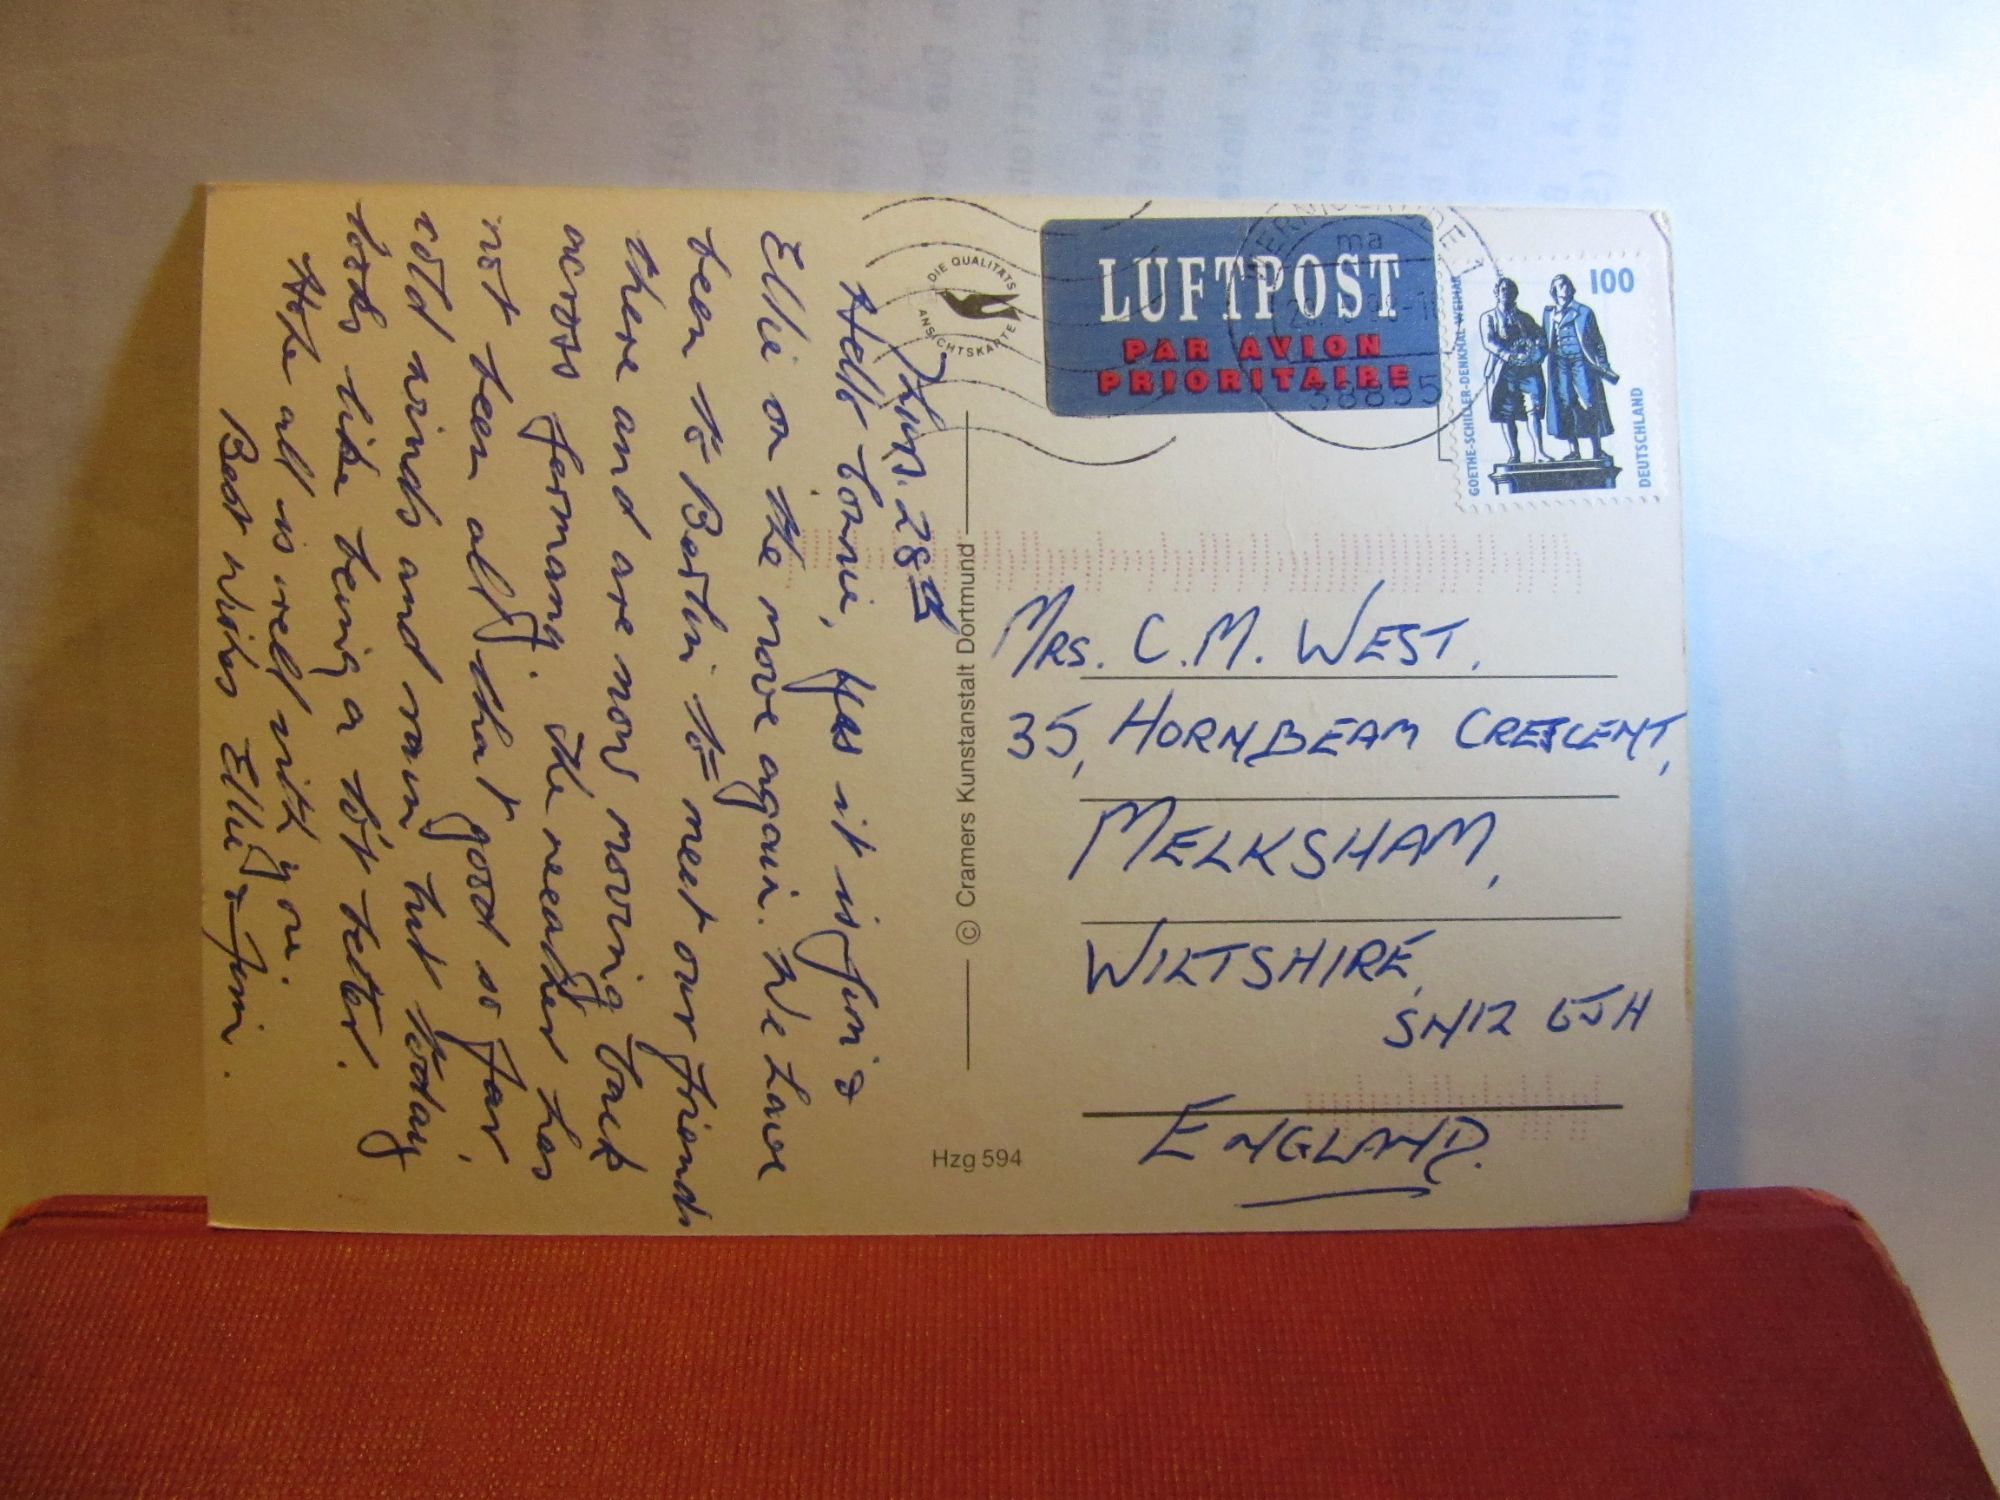 Thurs. 28th
Hello Connie, Yes it is Jim &
Ellie on the move again. We have
been to Berlin to meet our friends
there and are now moving back
across Germany. The weather has
not been all that good so far,
cold winds and rain but today
looks like being a lot better.
Hope all is well with you.
Best Wishes Ellie & Jim.
DIE QUALITÄTS
ANSICHTSKARTE
© Cramers Kunstanstalt Dortmund
Hzg 594
LUFTPOST
PAR AVION
PRIORITAIRE
ma
38855
100
GOETHE-SCHILLER-DENKMAL WEIMAR
DEUTSCHLAND
MRS. C.M. WEST,
35, HORNBEAM CRESCENT,
MELKSHAM,
WILTSHIRE,
SN12 6JH
ENGLAND.